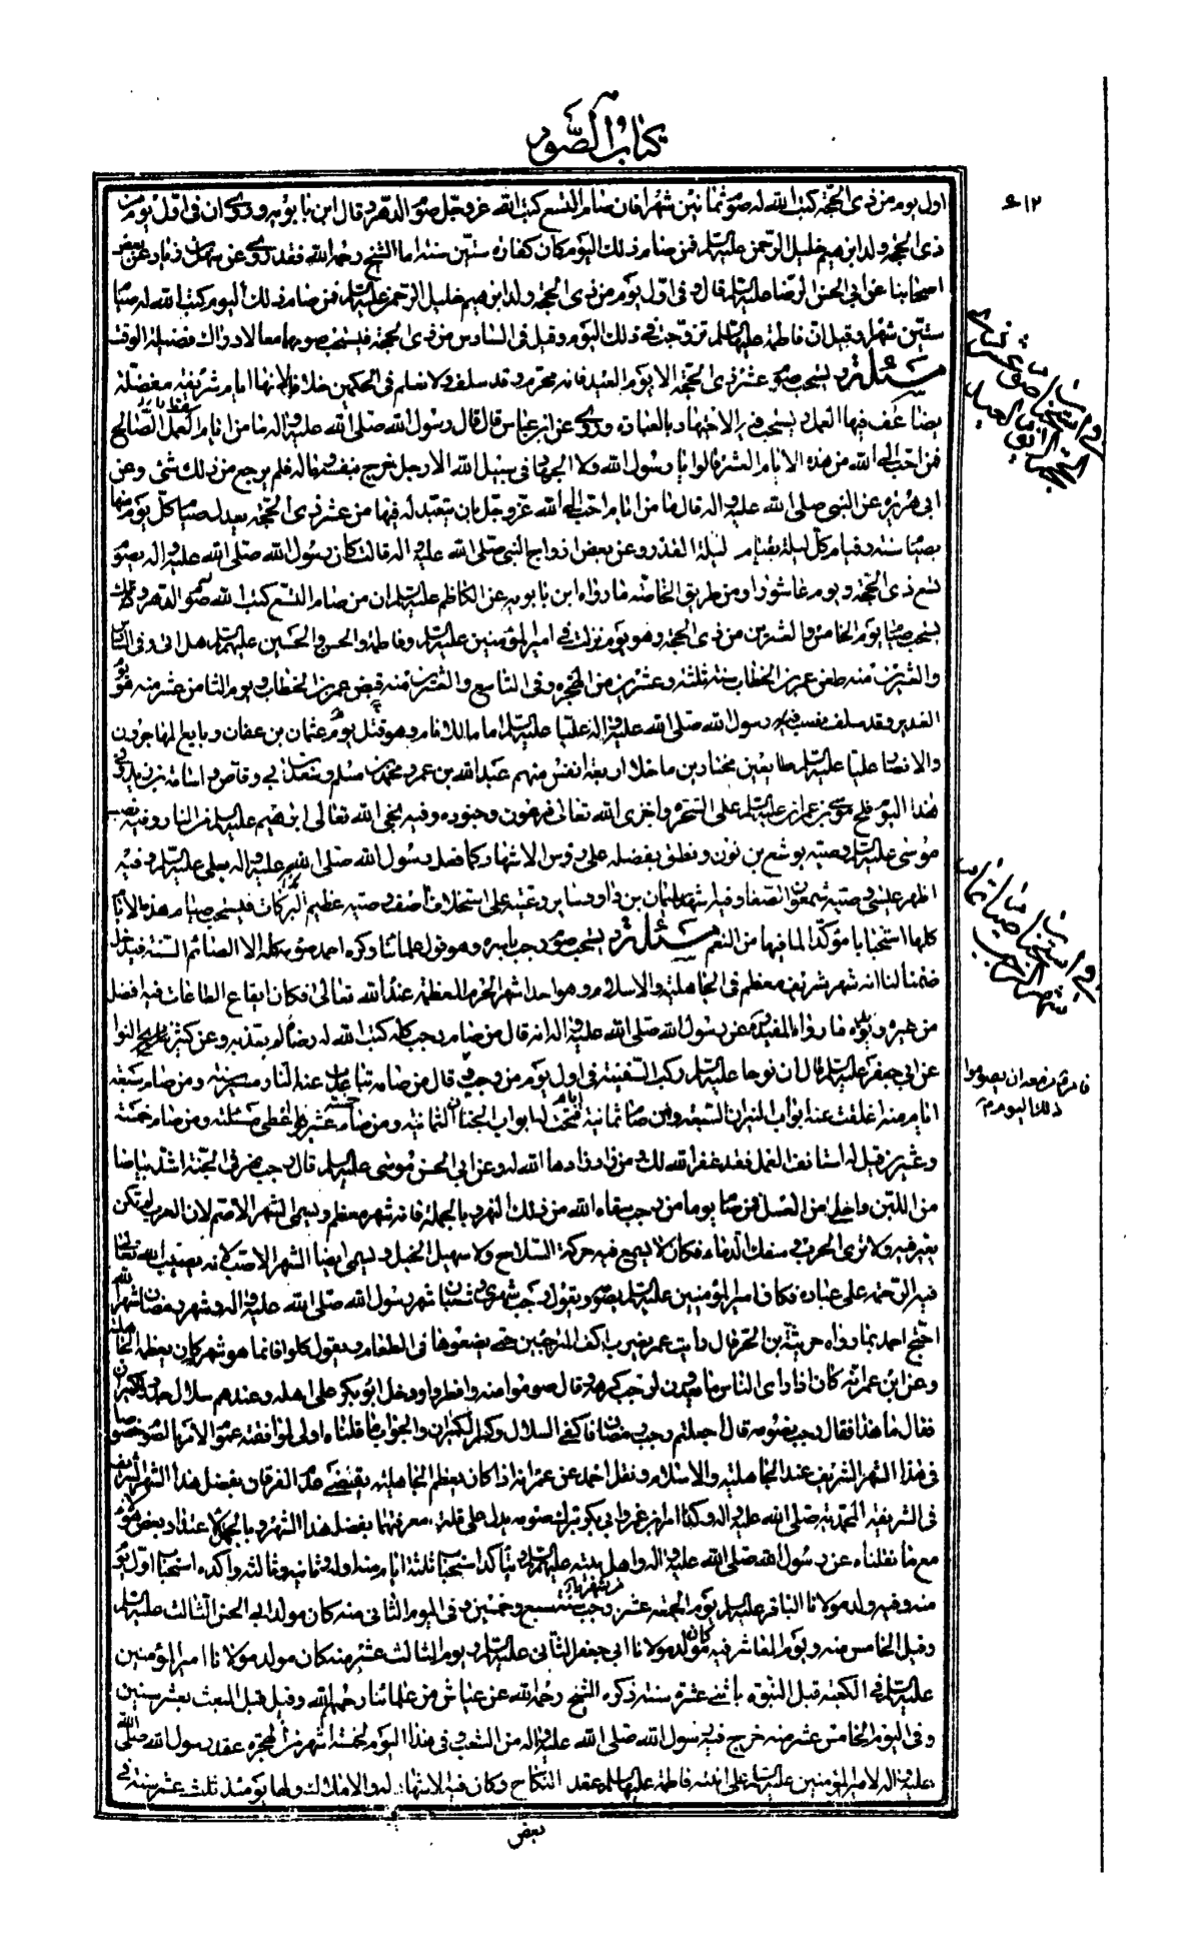 كتاب الصوم
٦١٢
اول يوم من ذى الحجة كتب الله له صوم ثمانين شهرا فان صام التسع كتب الله عز وجل صوم الدهر وقال ابن بابويه وروى ان فى اول يوم من
ذى الحجة ولد ابرهيم خليل الرحمن عليه السلم فمن صام ذلك اليوم كان كفارة ستين سنة اما الشيخ رحمه الله فقد روى عن سهل بن زياد عن بعض
اصحابنا عن ابى الحسن الرضا عليه السلم قال وفى اول يوم من ذى الحجة ولد ابرهيم خليل الرحمن عليه السلم فمن صام ذلك اليوم كتب الله له صيام
ستين شهرا وقيل ان فاطمة عليها السلم تزوجت فى ذلك اليوم وقيل فى السادس من ذى الحجة فيستحب صومهما معا لادراك فضيلة الوقت
مسئلة ويستحب صوم عشر ذى الحجة الا يوم العيد فانه محرم وقد سلف ولا نعلم فى الحكمين خلافا لانها ايام شريفة مفضلة
يضاعف فيها العمل ويستحب فيها الاجتهاد بالعبادة وروى عن ابن عباس قال قال رسول الله صلى الله عليه واله ما من ايام العمل الصالح
فيهن احب الى الله من هذه الايام العشر قالوا يا رسول الله ولا الجهاد فى سبيل الله الا رجل خرج بنفسه وماله فلم يرجع من ذلك بشئ وعن
ابى هريرة عن النبى صلى الله عليه واله قال ما من ايام احب الى الله عز وجل ان يتعبد له فيها من عشر ذى الحجة يعدل صيام كل يوم منها
بصيام سنة وقيام كل ليلة بقيام ليلة القدر وعن بعض ازواج النبى صلى الله عليه واله قالت كان رسول الله صلى الله عليه واله يصوم
تسع ذى الحجة ويوم عاشورا ومن طريق الخاصة ما رواه ابن بابويه عن الكاظم عليه السلم ان من صام التسع كتب الله له صوم الدهر وكذلك
يستحب صيام يوم الخامس والعشرين من ذى الحجة وهو يوم نزلت فى امير المؤمنين عليه السلم وفاطمة والحسن والحسين عليهم السلم هل اتى وفى السادس
والعشرين منه طعن عمر بن الخطاب سنة ثلثة وعشرين من الهجرة وفى التاسع والعشرين منه قبض عمر بن الخطاب ويوم الثامن عشر منه هو يوم
الغدير وقد سلف نصب فيه رسول الله صلى الله عليه واله عليا عليه السلم اماما للانام وهو قتل يوم عثمان بن عفان وبايع المهاجرون
والانصار عليا عليه السلم طايعين مختارين ما خلا اربعة انفس منهم عبد الله بن عمر ومحمد بن مسلم وسعد بن ابى وقاص واسامة بن زيد وفى
هذا اليوم فلج موسى بن عمران عليه السلم على السحرة واخزى الله تعالى فرعون وجنوده وفيه نجى الله تعالى ابرهيم عليه السلم من النار وفيه نصب
موسى عليه السلم وصيه يوشع بن نون ونطق بفضله على رؤس الاشهاد كما فعل رسول الله صلى الله عليه واله بعلى عليه السلم وفيه
اظهر عيسى وصيه شمعون الصفا وفيه اشهد سليمان بن داود ساير رعيته على استخلاف اصف وصيه عظيم البركات فيستحب صيام هذه الايام
كلها استحبابا مؤكدا لما فيها من النعم مسئلة ويستحب صوم رجب باسره وهو قول علمائنا وكره احمد صومه كله الا لصائم السنة فيدخل
ضمنا لنا انه شهر شريف معظم فى الجاهلية والاسلام وهو احد اشهر الحرم المعظمة عند الله تعالى فكان ايقاع الطاعات فيه افضل
من غيره ويؤيده ما رواه المفيد عن رسول الله صلى الله عليه واله انه قال من صام رجب كله كتب الله له رضاه ولم يعذبه وعن كثير بياع النوا
عن ابى جعفر عليه السلم قال ان نوحا عليه السلم ركب السفينة فى اول يوم من رجب قال من صامه تباعدت عنه النار مسير سنة ومن صام سبعة
ايام منه اغلقت عنه ابواب النيران السبعة ومن صام ثمانية ايام فتحت له ابواب الجنان الثمانية ومن صام خمسة عشر يوما اعطى مسئلته ومن صام خمسة
وعشرين قيل له استانف العمل فقد غفر الله لك ومن زاد زاده الله له وعن ابى الحسن موسى عليه السلم قال رجب نهر فى الجنة اشد بياضا
من اللبن واحلى من العسل فمن صام يوما من رجب سقاه الله من ذلك النهر وبالجملة فانه شهر معظم ويسمى الشهر الاصم لان العرب لم تكن
يغير فيه ولا ترى الحرب وسفك الدماء فكان لا يسمع فيه حركة السلاح ولا صهيل الخيل ويسمى ايضا الشهر الاصب لانه يصب الله تعالى
فيه الرحمة على عباده فكان امير المؤمنين عليه السلم يصوم ويقول رجب شهرى وشعبان شهر رسول الله صلى الله عليه واله وشهر رمضان شهر الله
احتج احمد بما رواه خرشة بن الحر قال رايت عمر يضرب اكف المترجبين حتى يضعوها فى الطعام ويقول كلوا فانما هو شهر كان يعظمه الجاهلية
وعن ابن عمر انه كان اذا راى الناس وما يعدون لرجب كرهه وقال صوموا منه وافطروا ودخل ابو بكر على اهله وعندهم سلال جدد وكيزان
فقال ما هذا فقال رجب نصومه قال اجعلتم رجب رمضان فاكفى السلال وكسر الكيزان والجواب ما قلناه اولى لموافقته عموم الامر بالصوم خصوصا
فى هذا الشهر الشريف عند الجاهلية والاسلام ونقل احمد عن عمر انه اذا كان يعظم الجاهلية يقتضى عدم العرفان بفضل هذا الشهر الشريف
فى الشريعة المحمدية صلى الله عليه واله وكذا امر ابن عمر وابى بكر بترك صومه يدل على قلة معرفتهما بفضل هذا الشهر وبالجملة لا عتداد بفعل هؤلاء
مع ما نقلناه عن رسول الله صلى الله عليه واله واهل بيته عليهم السلم ويتاكد استحباب ثلثة ايام منه اوله وثانيه وثالثه واكده استحبابا اول يوم
منه وفيه ولد مولانا الباقر عليه السلم يوم الجمعة غرة رجب سنة سبع وخمسين وفى اليوم الثانى منه كان مولد ابى الحسن الثالث عليه السلم
وقيل الخامس منه ويوم العاشر فيه كان مولد مولانا ابى جعفر الثانى عليه السلم ويوم الثالث عشر منه كان مولد مولانا امير المؤمنين
عليه السلم فى الكعبة قبل النبوة باثنى عشرة سنة ذكره الشيخ رحمه الله عن عياش من علمائنا رحمهم الله وقيل قبل البعث بعشر سنين
وفى اليوم الخامس عشر منه خرج فيه رسول الله صلى الله عليه واله من الشعب وفى هذا اليوم لخمسة اشهر من الهجرة عقد رسول الله صلى الله
عليه واله لامير المؤمنين عليه السلم على ابنته فاطمة عليها السلم عقد النكاح وكان فيه الاشهاد له والاملاك ولها يومئذ ثلث عشر سنة فى
فى استحباب صوم عشر ذى الحجة الا يوم العيد
فى استحباب صيام شهر رجب
فامر من معه ان يصوموا
ذلك اليوم م
بعض